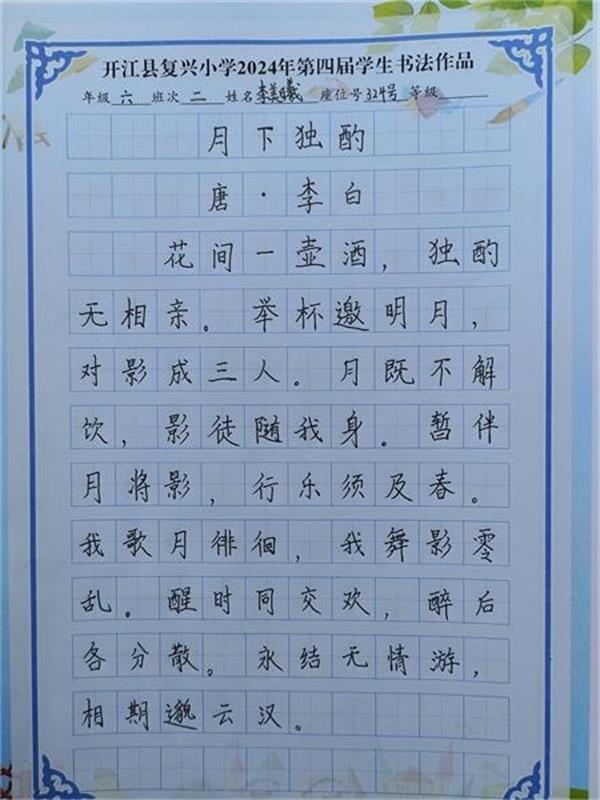 开江县复兴小学2024年第四届学生书法作品
年级 六 班次 二 姓名 李美曦 座位号 324号 等级
月下独酌
唐·李白
花间一壶酒，独酌
无相亲。举杯邀明月，
对影成三人。月既不解
饮，影徒随我身。暂伴
月将影，行乐须及春。
我歌月徘徊，我舞影零
乱。醒时同交欢，醉后
各分散。永结无情游，
相期邈云汉。